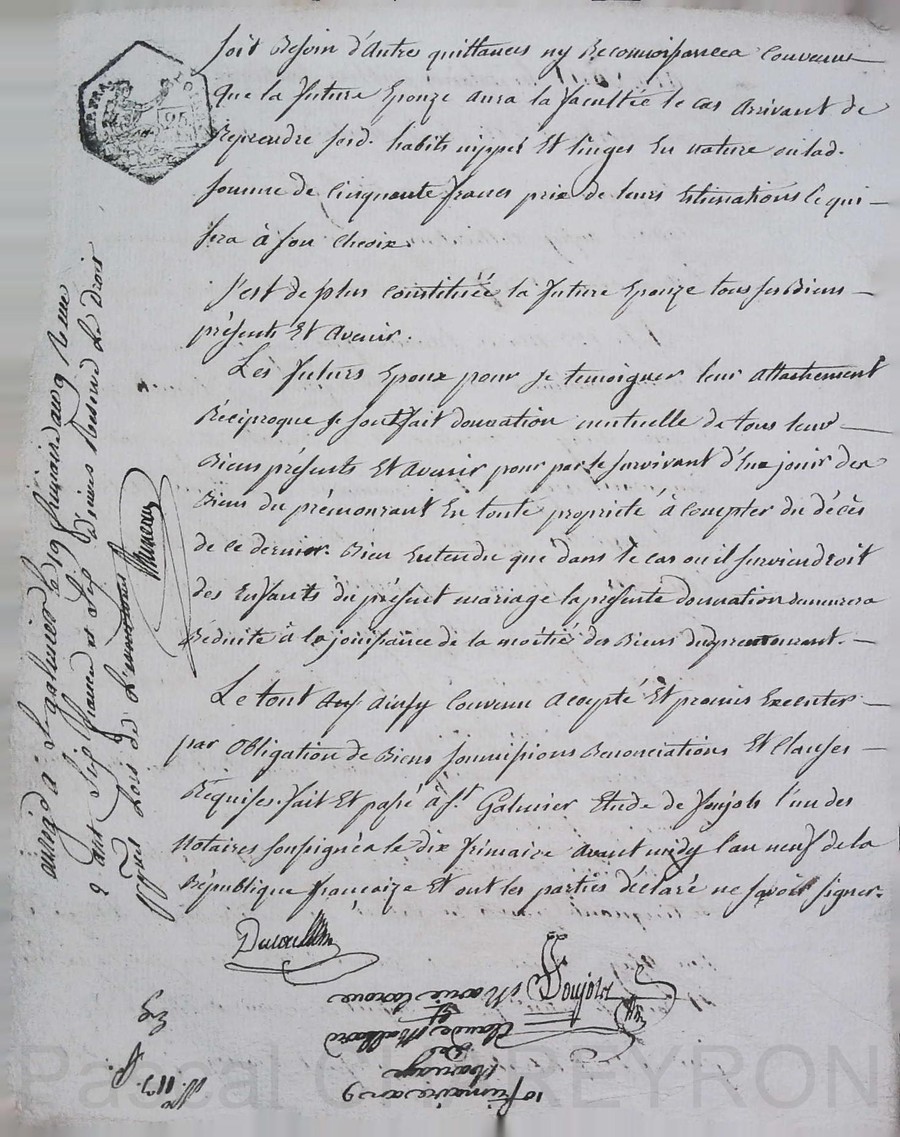 soit Besoin d'Autre quittances ny Reconnoissances Convenu
que la future Epouze aura la facultée le cas Arrivant de
Reprendre sesd. habits nippes Et linges En nature ou lad.
somme de Cinquante francs prix de leurs Estimations Ce qui
sera à son Choix.
S'est de plus Constituée la future Epouze tous ses Biens
présents Et Avenir.
Les futurs Epoux pour se temoigner leur Attachement
Réciproque se sont fait donnation mutuelle de tous leurs
Biens présents Et avenir pour par le survivant d'Eux jouir des
Biens du prémourant En toute propriété à compter du décès
de ce dernier. Bien Entendu que dans le cas ou il surviendroit
des Enfants du présent mariage la présente donnation demeurera
Réduite à la jouissance de la moitié des Biens du prémourant.
Le tout ainsy Convenu Accepté Et promis Executer
par Obligation de Biens soumissions Renonciations Et Clauses
Requises. fait Et passé à St. Galmier Etude de Soujols l'un des
Notaires soussignés le dix frimaire avant midy l'an neuf de la
République françaize Et ont les parties déclaré ne savoir signer.
Soujols
Enrégé à St galmier le 19 frimaire an 9 Reçu
francs et
10 frimaire an 9
Mariage
De
Claude Mallard
Et
Marie
N° 117
Pascal CHAREYRON